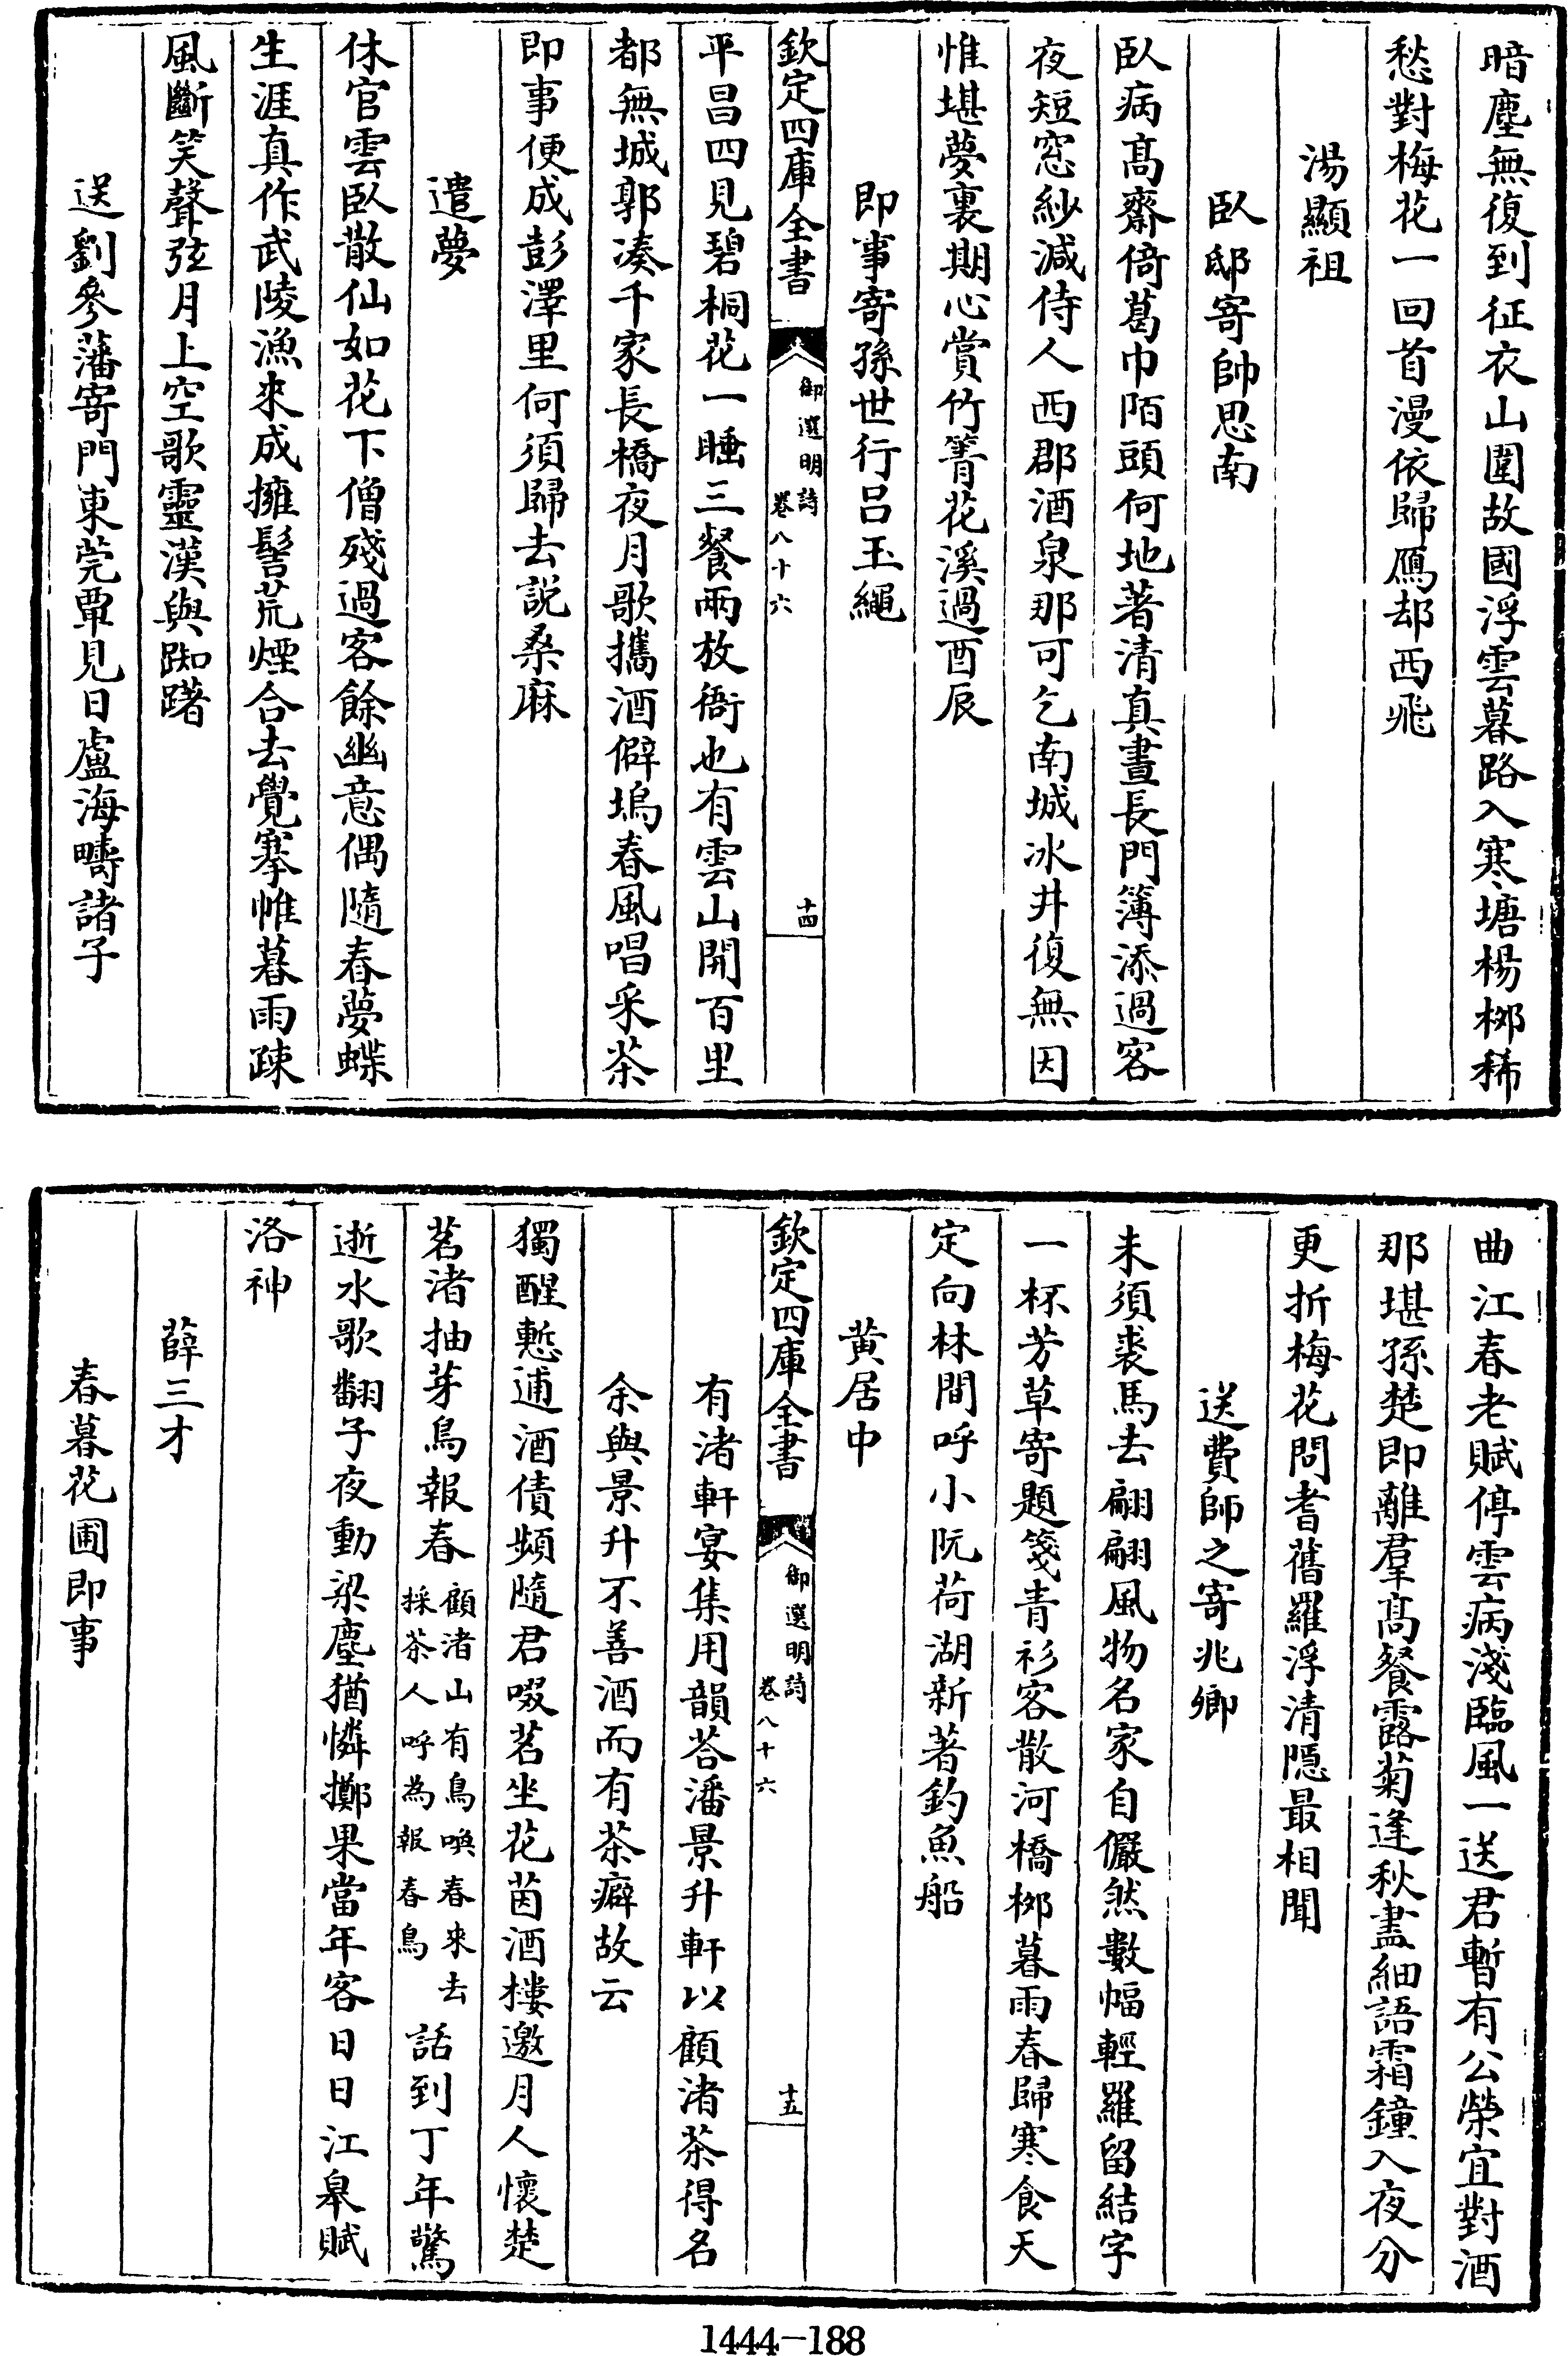 暗塵無復到征衣山圍故國浮雲暮路入寒塘楊栁稀
愁對梅花一回首漫依歸鴈却西飛
湯顯祖
臥邸寄帥思南
臥病髙齋倚葛巾陌頭何地著清真晝長門簿添過客
夜短窓紗減侍人西郡酒泉那可乞南城冰井復無因
惟堪夢裏期心賞竹箐花溪過酉辰
即事寄孫世行吕玉繩
欽定四庫全書
御選明詩
卷八十六
十四
平昌四見碧桐花一睡三餐兩放衙也有雲山開百里
都無城郭凑千家長橋夜月歌攜酒僻塢春風唱采茶
即事便成彭澤里何須歸去説桑麻
遣夢
休官雲臥散仙如花下僧殘過客餘幽意偶隨春夢蝶
生涯真作武陵漁來成擁髻荒煙合去覺搴帷暮雨疎
風斷笑聲弦月上空歌靈漢與踟躇
送劉參藩寄門東莞覃見日盧海疇諸子
曲江春老賦停雲病淺臨風一送君暫有公榮宜對酒
那堪孫楚即離羣髙餐露菊逢秋盡細語霜鐘入夜分
更折梅花問耆舊羅浮清隱最相聞
送費師之寄兆卿
未須裘馬去翩翩風物名家自儼然數幅輕羅留結字
一杯芳草寄題箋青衫客散河橋栁暮雨春歸寒食天
定向林間呼小阮荷湖新著釣魚船
黄居中
欽定四庫全書
御選明詩
卷八十六
十五
有渚軒宴集用韻荅潘景升軒以顧渚茶得名
余與景升不善酒而有茶癖故云
獨醒慙逋酒債頻隨君啜茗坐花茵酒樓邀月人懷楚
茗渚抽芽鳥報春顧渚山有鳥喚春來去採茶人呼為報春鳥話到丁年驚
逝水歌翻子夜動梁塵猶憐擲果當年客日日江皋賦
洛神
薛三才
春暮花圃即事
1444-188